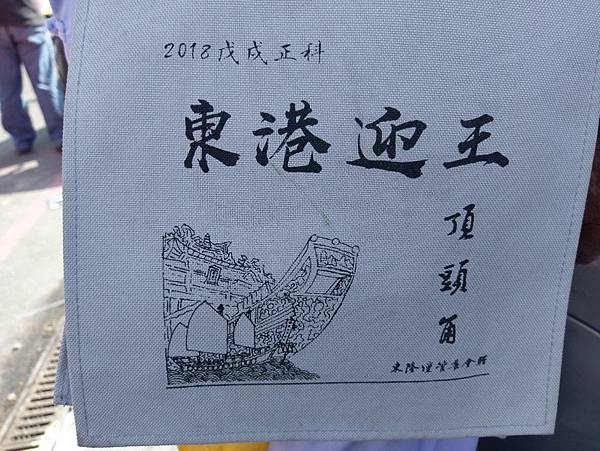 2018戊戌正科
東港迎王
頂頭角
東隆壇管委會